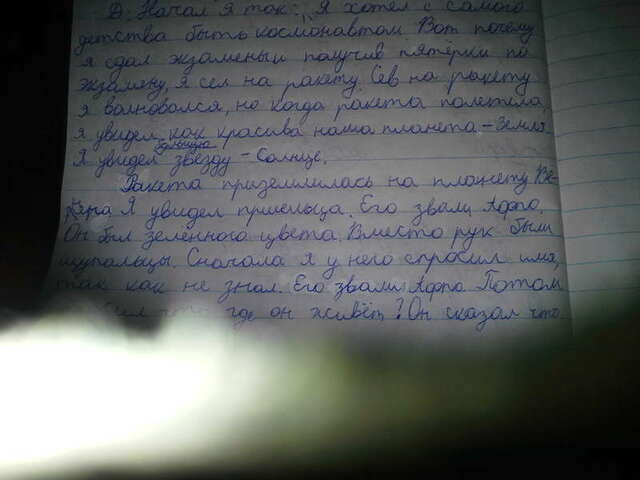 Д. Начал я так: „Я хотел с самого
детства быть космонавтом Вот почему
я сдал экзамены и получив пятёрки по
экзамену, я сел на ракету. Сев на ракету
я волновался, но когда ракета полетела
я увидел как красива наша планета - Земля
большую
Я увидел звезду - Солнце.
Ракета приземлилась на планету Ве-
Я увидел пришельца. Его звали Афра.
Он был зеленного цвета. Вместо рук были
щупальцы. Сначала я у него спросил имя,
так как не знал. Его звали Афра Потом
где он живёт? Он сказал что